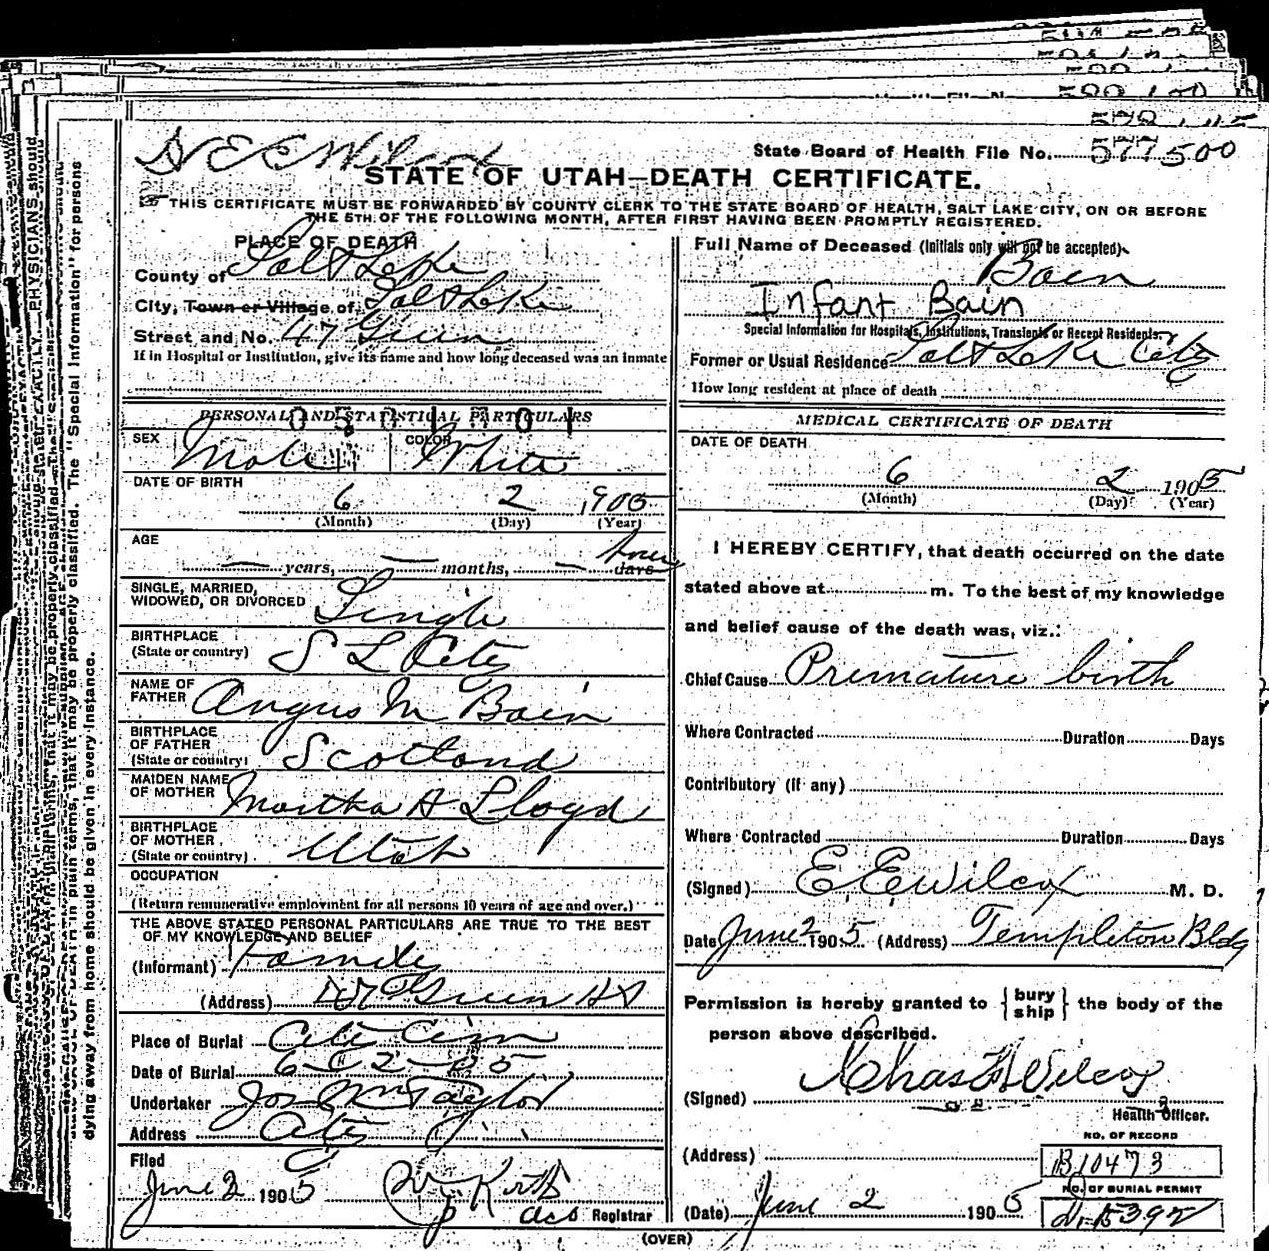 Dr E E Wilcox
State Board of Health File No. 577500
STATE OF UTAH—DEATH CERTIFICATE.
THIS CERTIFICATE MUST BE FORWARDED BY COUNTY CLERK TO THE STATE BOARD OF HEALTH, SALT LAKE CITY, ON OR BEFORE
THE 5TH OF THE FOLLOWING MONTH, AFTER FIRST HAVING BEEN PROMPTLY REGISTERED.
PLACE OF DEATH
County of Salt Lake
City, Town or Village of Salt Lake
Street and No. 47 Green
If in Hospital or Institution, give its name and how long deceased was an inmate
PERSONAL AND STATISTICAL PARTICULARS
0501001
SEX Male
COLOR White
DATE OF BIRTH
6 2 1905
(Month) (Day) (Year)
AGE
— years, — months, — days
SINGLE, MARRIED,
WIDOWED, OR DIVORCED Single
BIRTHPLACE
(State or country) S L City
NAME OF
FATHER Angus M Bain
BIRTHPLACE
OF FATHER
(State or country) Scotland
MAIDEN NAME
OF MOTHER Martha A Lloyd
BIRTHPLACE
OF MOTHER
(State or country) Utah
OCCUPATION
(Return remunerative employment for all persons 10 years of age and over.)
THE ABOVE STATED PERSONAL PARTICULARS ARE TRUE TO THE BEST
OF MY KNOWLEDGE AND BELIEF
(Informant) Family
(Address) 47 Green St
Place of Burial City Cem
Date of Burial 6-2-05
Undertaker Jos Wm Taylor
Address City
Filed
June 2 1905
Registrar
Full Name of Deceased (Initials only will not be accepted)
Bain
Infant Bain
Special Information for Hospitals, Institutions, Transients or Recent Residents.
Former or Usual Residence Salt Lake City
How long resident at place of death
MEDICAL CERTIFICATE OF DEATH
DATE OF DEATH
6 2 1905
(Month) (Day) (Year)
I HEREBY CERTIFY, that death occurred on the date
stated above at m. To the best of my knowledge
and belief cause of the death was, viz.:
Chief Cause Premature birth
Where Contracted Duration Days
Contributory (if any)
Where Contracted Duration Days
(Signed) E E Wilcox M. D.
Date June 2 1905 (Address) Templeton Bldg
Permission is hereby granted to { bury ship } the body of the
person above described.
(Signed) Chas F Wilcox
Health Officer.
NO. OF RECORD
(Address) B10473
NO. OF BURIAL PERMIT
(Date) June 2 1905
(OVER)
dying away from home should be given in every instance.